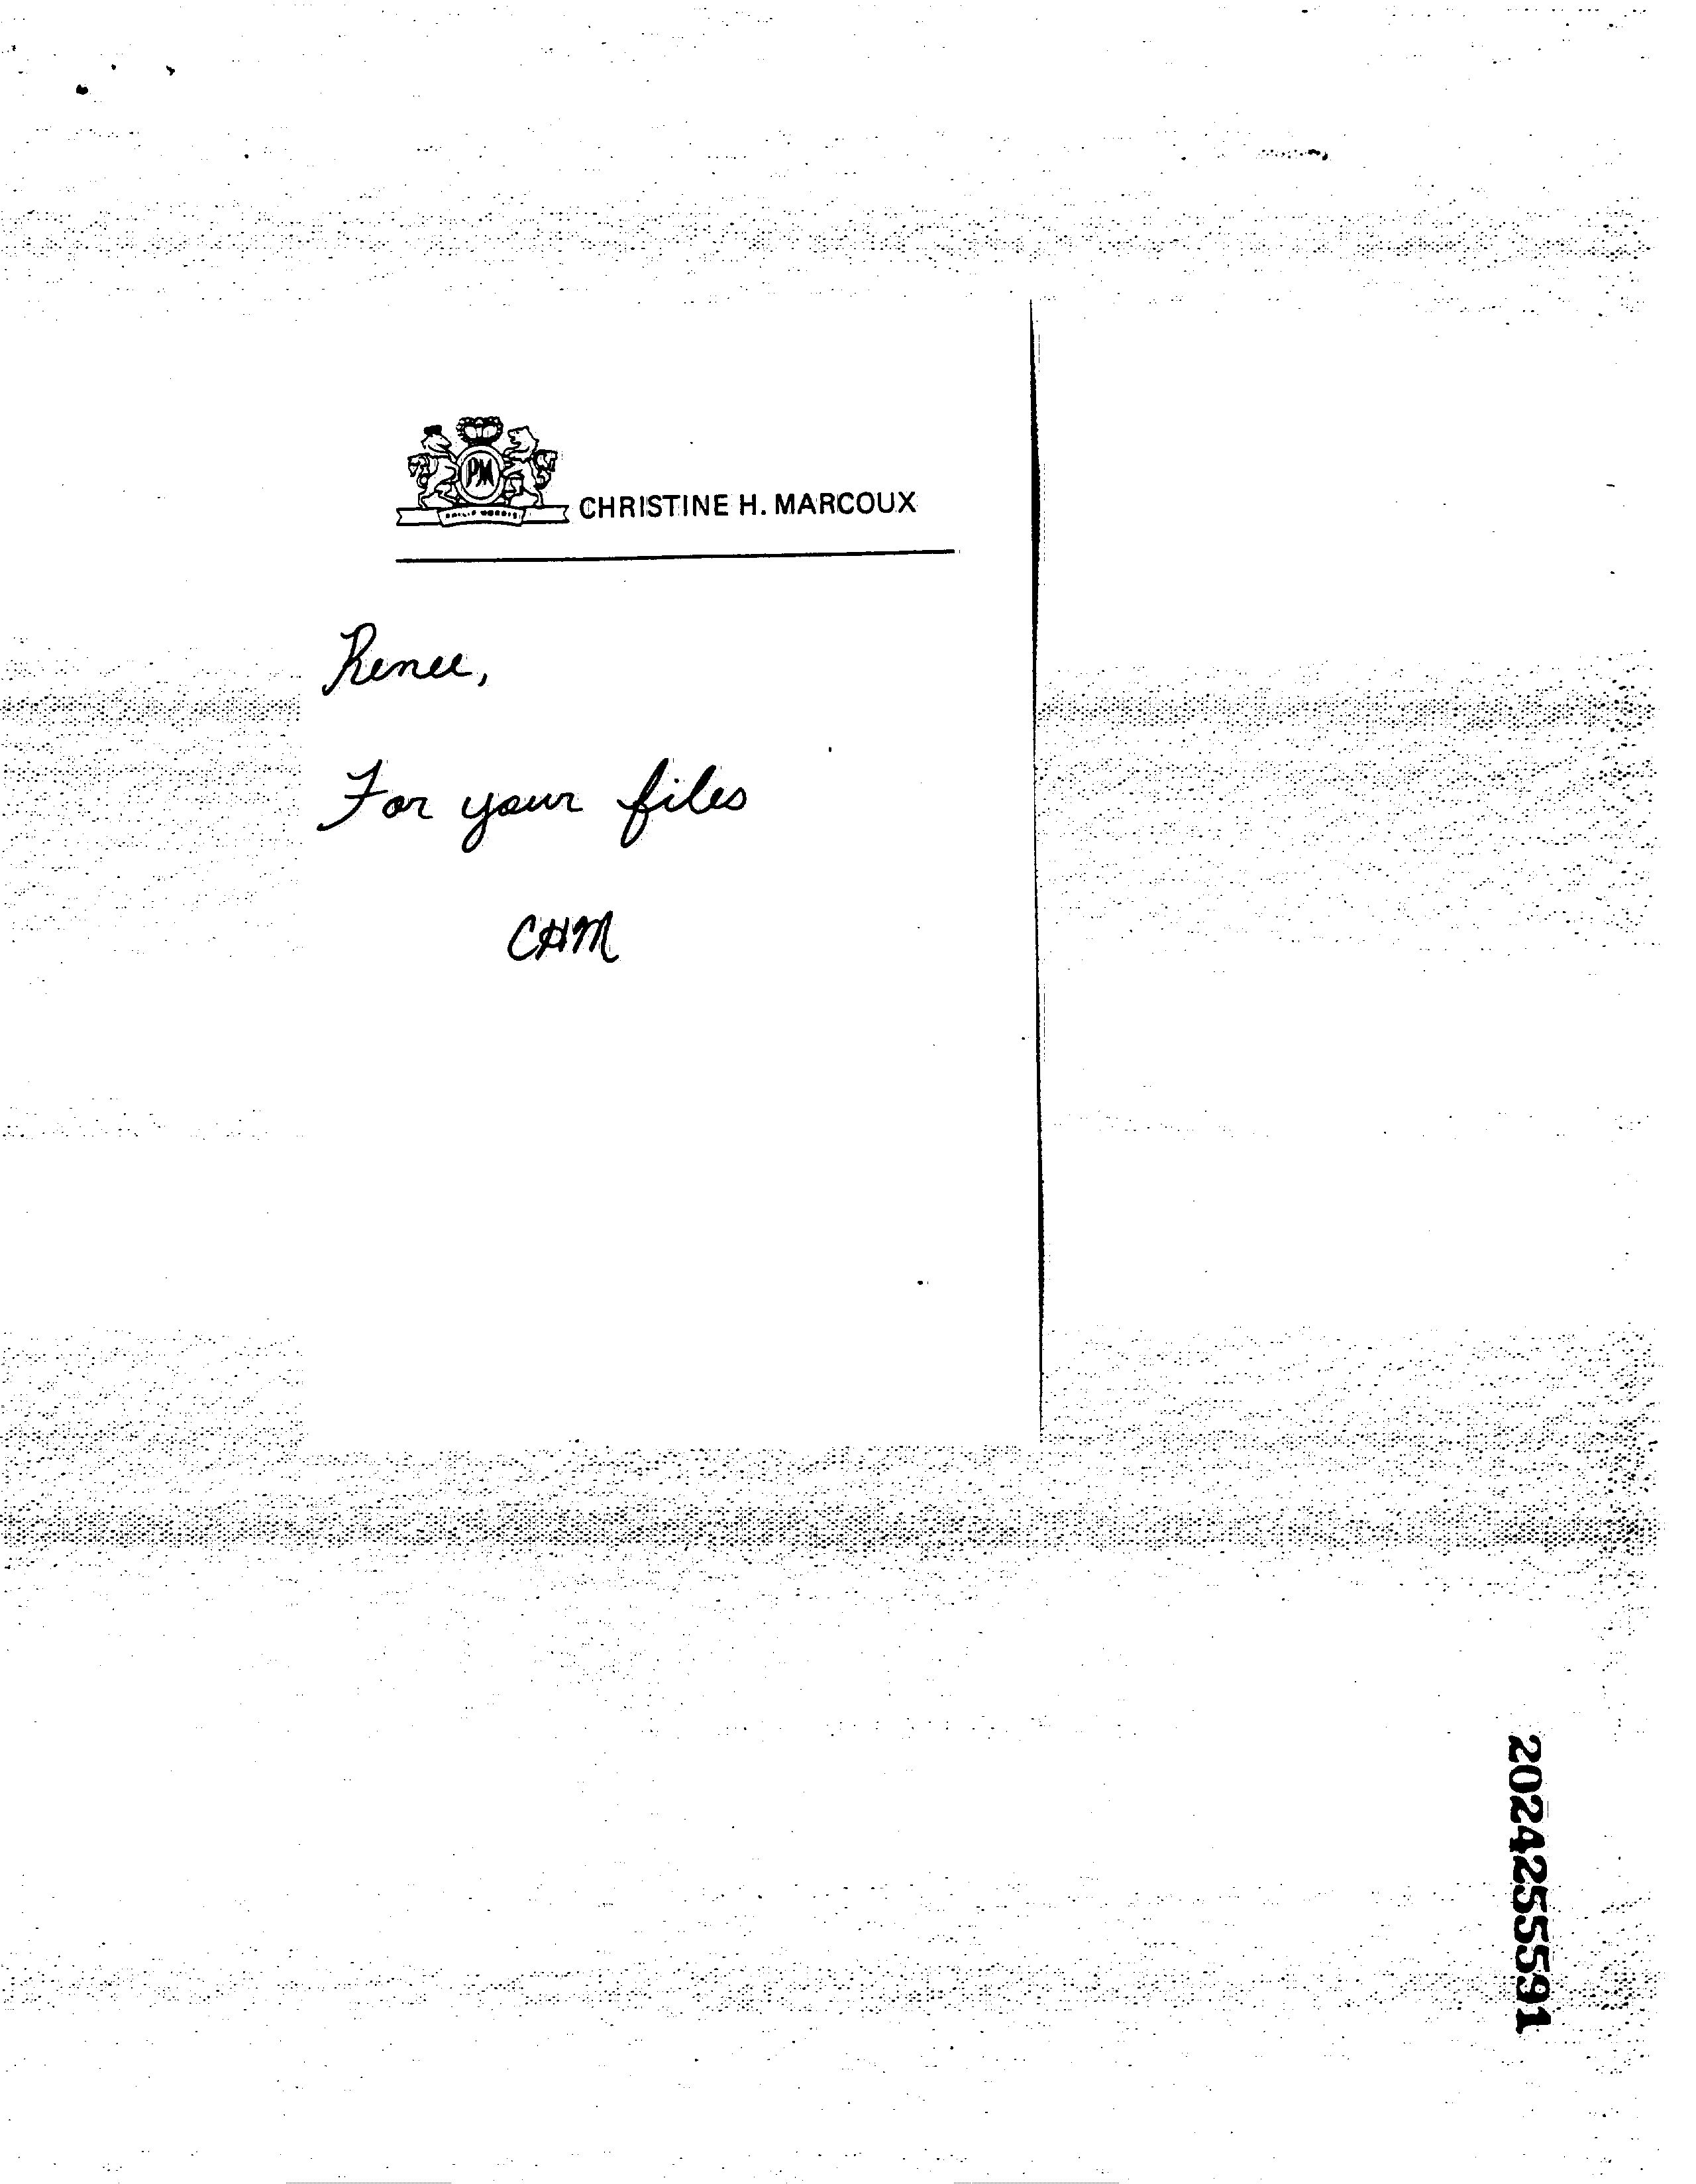 PM
PHILIP MORRIS
CHRISTINE H. MARCOUX
Renee,
For your files
CHM
2024255591